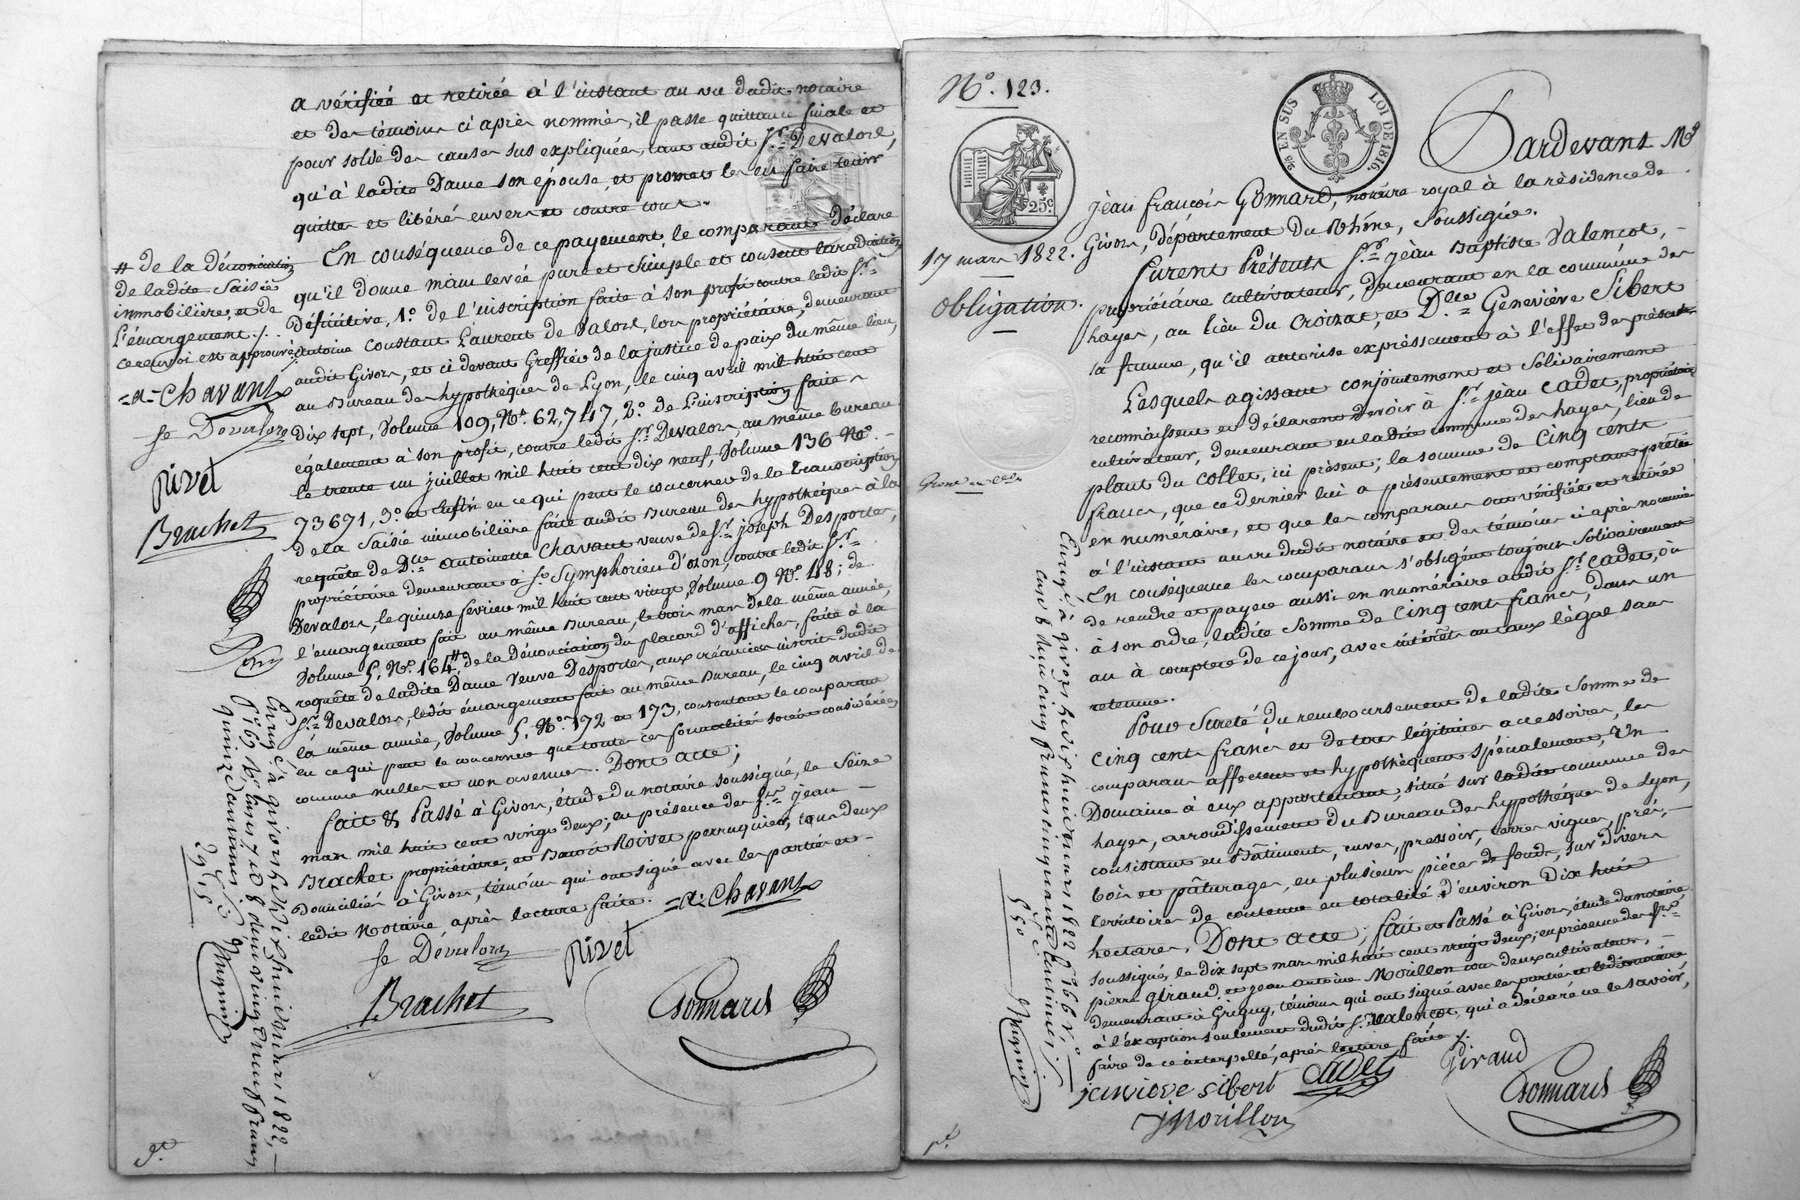 a vérifiée et retirée à l'instant au vu dudit notaire
et des témoins ci après nommés, il passe quittance finale et
pour solde des causes sus expliquées, tant audit Sr. Devalors,
qu'à ladite Dame son épouse, et promet les en faire tenir
quittes et libérés envers et contre tous.
En conséquence de ce payement, le comparant déclare
qu'il donne main levée pure et simple et consent la radiation
définitive, 1o. de l'inscription faite à son profit contre ledit Sr.
Antoine Constant Laurent de Valors, lors propriétaire, demeurant
audit Givors, et ci devant Greffier de la justice de paix du même lieu,
au Bureau des hypothèques de Lyon, le cinq avril mil huit cent
dix sept, Volume 109, No. 62,747, 2o. de l'inscription faite
également à son profit, contre ledit Sr. Devalors, au même bureau
le trente un juillet mil huit cent dix neuf, Volume 136 No.
73671, 3o. et enfin en ce qui peut le concerner de la transcription
de la Saisie immobilière faite audit Bureau des hypothèques à la
requête de Dme. Antoinette Chavant veuve de Sr. joseph Desportes,
propriétaire demeurant à St. Symphorien d'ozon, contre ledit Sr.
Devalors, le quinze février mil huit cent vingt, Volume 9 No. 48; de
l'émargement fait au même Bureau, le trois mars de la même année,
Volume 5, No. 164 # de la Dénonciation du placard d'affiches, faite à la
requête de ladite Dame veuve Desportes, aux créanciers inscrits dudit
Sr. Devalors, ledit émargement fait au même Bureau, le cinq avril de
la même année, Volume 5, No. 172 et 173, consentant le comparant
en ce qui peut le concerner que toutes ces formalités soient considérées
comme nulles et non avenues. Dont acte;
fait & Passé à Givors, étude du notaire soussigné, le Seize
mars mil huit cent vingt deux; en présence des Srs. jean
Brachet propriétaire, et Benoit Rivet perruquier, tous deux
Domiciliés à Givors, témoins qui ont signé avec les parties et
ledit Notaire, après lecture faite. =a= Chavant
fe Devalors rivet
Brachet Gomard
# de la dénonciation
de ladite Saisie
immobilière, et de
l'émargement ./.
ce renvoi est approuvé
=a= Chavant
fe Devalors
rivet
Brachet
Enreg. à givors le dix huit mars 1822,
quinze
No. 123.
25 EN SUS LOI DE 1816.
25c
17 mars 1822.
Obligation.
Pardevant Me
jean françois Gomard, notaire royal à la résidence de
Givors, département du Rhône, Soussigné.
furent Présents Sr. jean Baptiste Valencot,
propriétaire cultivateur, demeurant en la commune des
hayes, au lieu du Croizat, et Dlle. Geneviève Sibert
sa femme, qu'il autorise expressément à l'effet des présentes
Lesquels agissant conjointement et solidairement
reconnaissent et déclarent devoir à Sr. jean Cadet, propriétaire
cultivateur, demeurant en ladite commune des hayes, lieu de
plant du Collet, ici présent; la somme de Cinq cents
francs, que ce dernier lui a présentement et comptant prêtée
en numéraire, et que les comparans ont vérifiée et retirée
à l'instant au vu dudit notaire et des témoins ci après nommés
En conséquence les comparans s'obligent toujours solidairement
de rendre et payer aussi en numéraire audit Sr. Cadet, où
à son ordre, ladite Somme de Cinq cents francs, dans un
an à compter de ce jour, avec intérêts au taux légal sans
retenue.
Pour Sureté du remboursement de ladite Somme de
Cinq cents francs et de tous légitimes accessoires, les
comparans affectent et hypothèquent spécialement, Un
Domaine à eux appartenant, situé sur ladite commune des
hayes, arrondissement du Bureau des hypothèques de Lyon,
consistant en Bâtiments, cuves, pressoir, terres vignes, prés,
bois et pâturages, en plusieurs pièces de fonds, sur divers
territoires de contenue en totalité d'environ Dix huit
hectares, Dont acte; fait et Passé à Givors, étude du notaire
soussigné, le dix sept mars mil huit cent vingt deux; en présence des Srs.
pierre Giraud, et jean Antoine Morillon tous deux cultivateurs,
demeurant à Grigny, témoins qui ont signé avec les parties et ledit notaire
à l'exception seulement dudit Sr. Valencot, qui a déclaré ne le savoir,
faire de ce interpellé, après lecture faite ./.
jenvieve sibert Cadet Giraud
j Morillon Gomard
Enreg. à givors le dix huit mars 1822